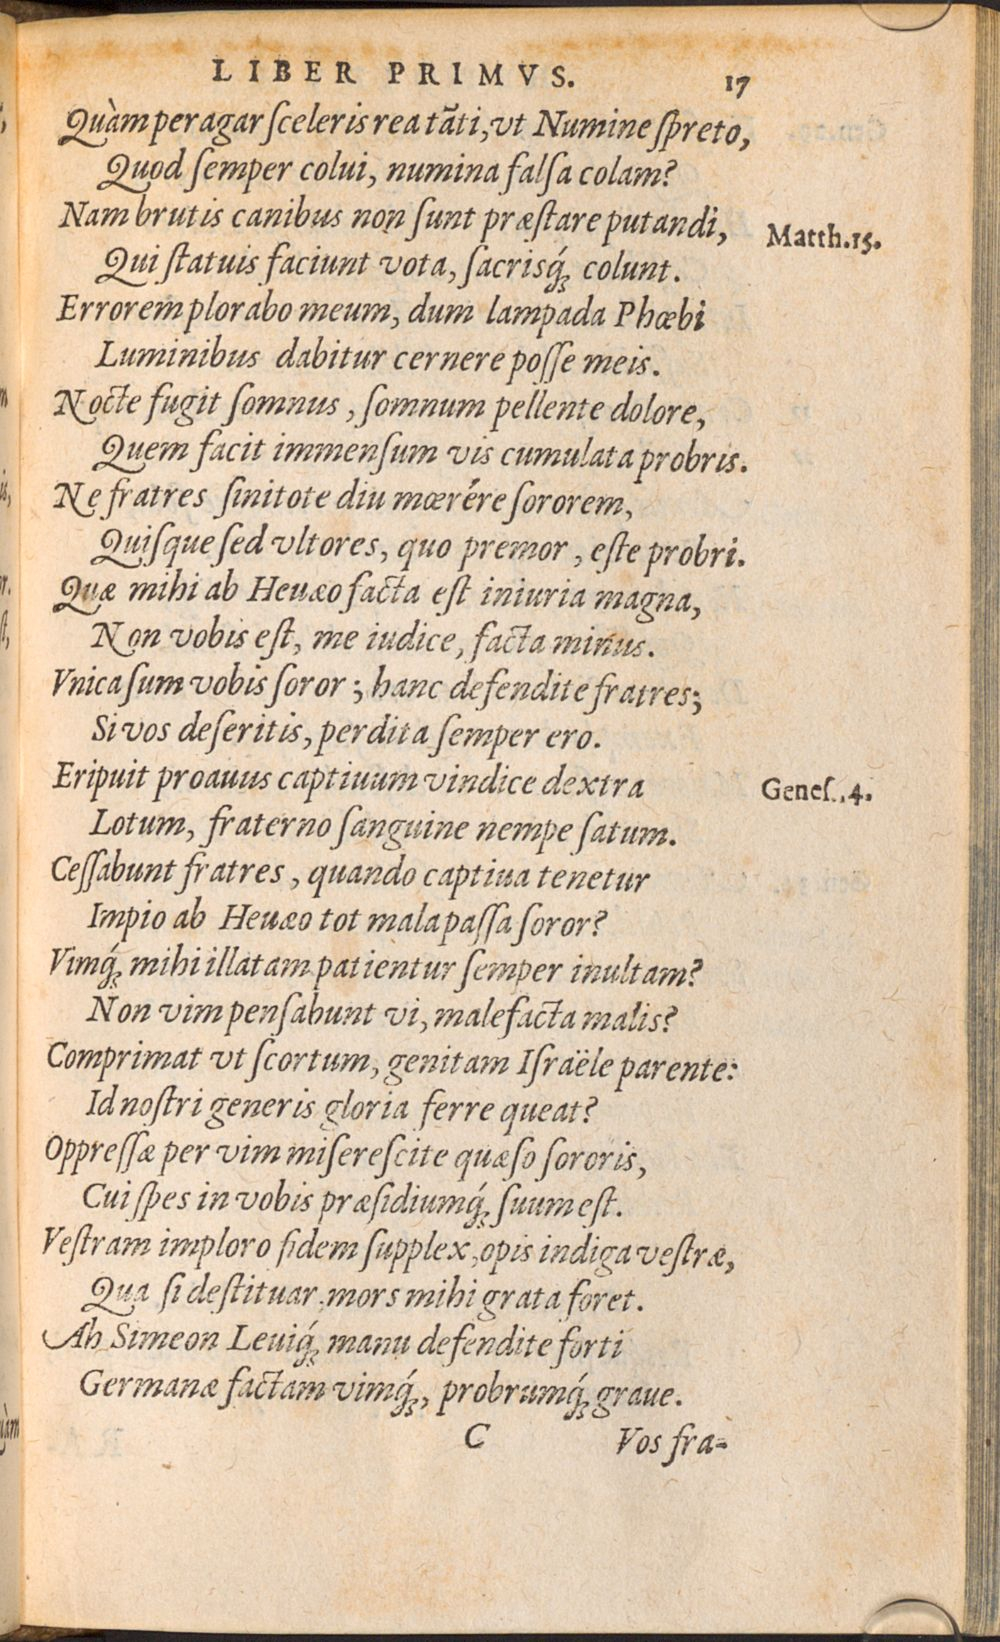 LIBER PRIMVS. 17
Quàm peragar ſceleris rea tāti, vt Numine ſpreto,
Quod ſemper colui, numina falſa colam?
Nam brutis canibus non ſunt præſtare putandi, Matth.15.
Qui ſtatuis faciunt vota, ſacrisq́; colunt.
Errorem plorabo meum, dum lampada Phœbi
Luminibus dabitur cernere poſſe meis.
Nocte fugit ſomnus, ſomnum pellente dolore,
Quem facit immenſum vis cumulata probris.
Ne fratres ſinitote diu mœrére ſororem,
Quiſque ſed vltores, quo premor, eſte probri.
Quæ mihi ab Heuæo facta eſt iniuria magna,
Non vobis eſt, me iudice, facta minus.
Vnica ſum vobis ſoror; hanc defendite fratres;
Si vos deſeritis, perdita ſemper ero.
Eripuit proauus captiuum vindice dextra Geneſ.4.
Lotum, fraterno ſanguine nempe ſatum.
Ceſſabunt fratres, quando captiua tenetur
Impio ab Heuæo tot mala paſſa ſoror?
Vimq́; mihi illatam patientur ſemper inultam?
Non vim penſabunt vi, malefacta malis?
Comprimat vt ſcortum, genitam Iſraële parente:
Id noſtri generis gloria ferre queat?
Oppreſſæ per vim miſereſcite quæſo ſororis,
Cui ſpes in vobis præſidiumq́; ſuum eſt.
Veſtram imploro fidem ſupplex, opis indiga veſtræ,
Qua ſi deſtituar, mors mihi grata foret.
Ah Simeon Leuiq́; manu defendite forti
Germanæ factam vimq́;, probrumq́; graue.
C Vos fra-